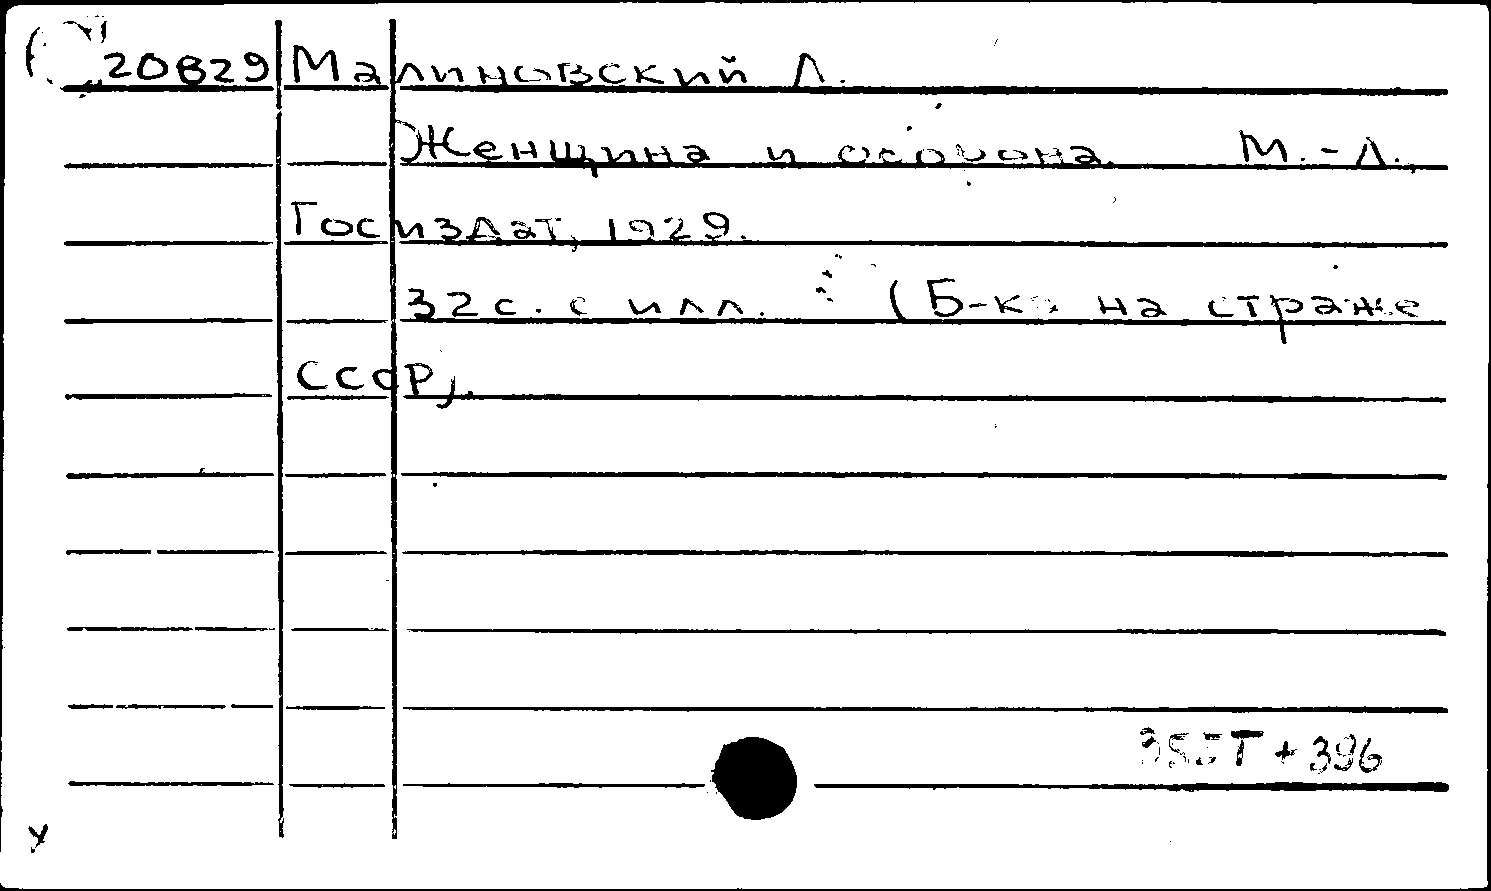 20829 Малиновский Л.
Женщина и оборона. М.-Л.,
Госиздат, 1929.
32 с. с илл. (Б-ка на страже
СССР).
355Т + 396